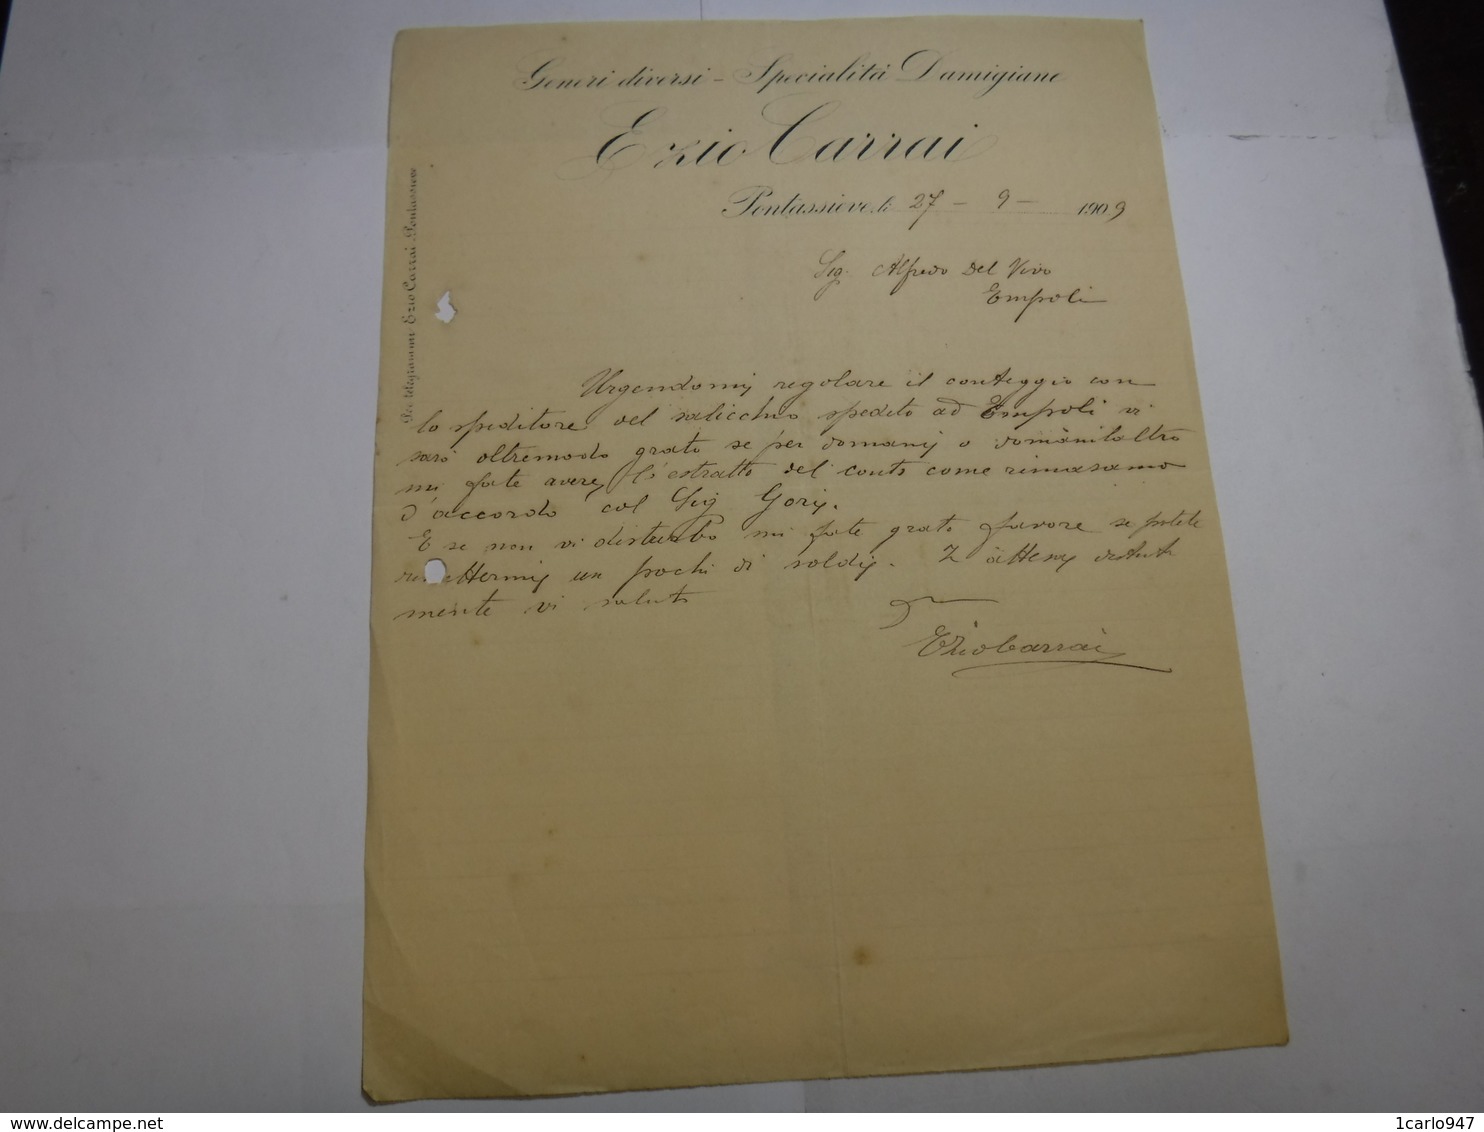 Generi diversi - Specialità Damigiane
Ezio Carrai
Pontassieve, li 27 - 9 - 1909
Per telegrammi Ezio Carrai-Pontassieve
Sig. Alfredo Del Vivo
Empoli
Urgendomi regolare il conteggio con
lo speditore del salicchio spedito ad Empoli vi
sarò oltremodo grato se per domani o domanilaltro
mi fate avere l'estratto del conto come rimasamo
d'accordo col Sig Gori.
E se non vi disturbo mi fate grato favore se potete
un pochi di soldi.
mente vi saluto
Ezio Carrai
delcampe.net
1carlo947